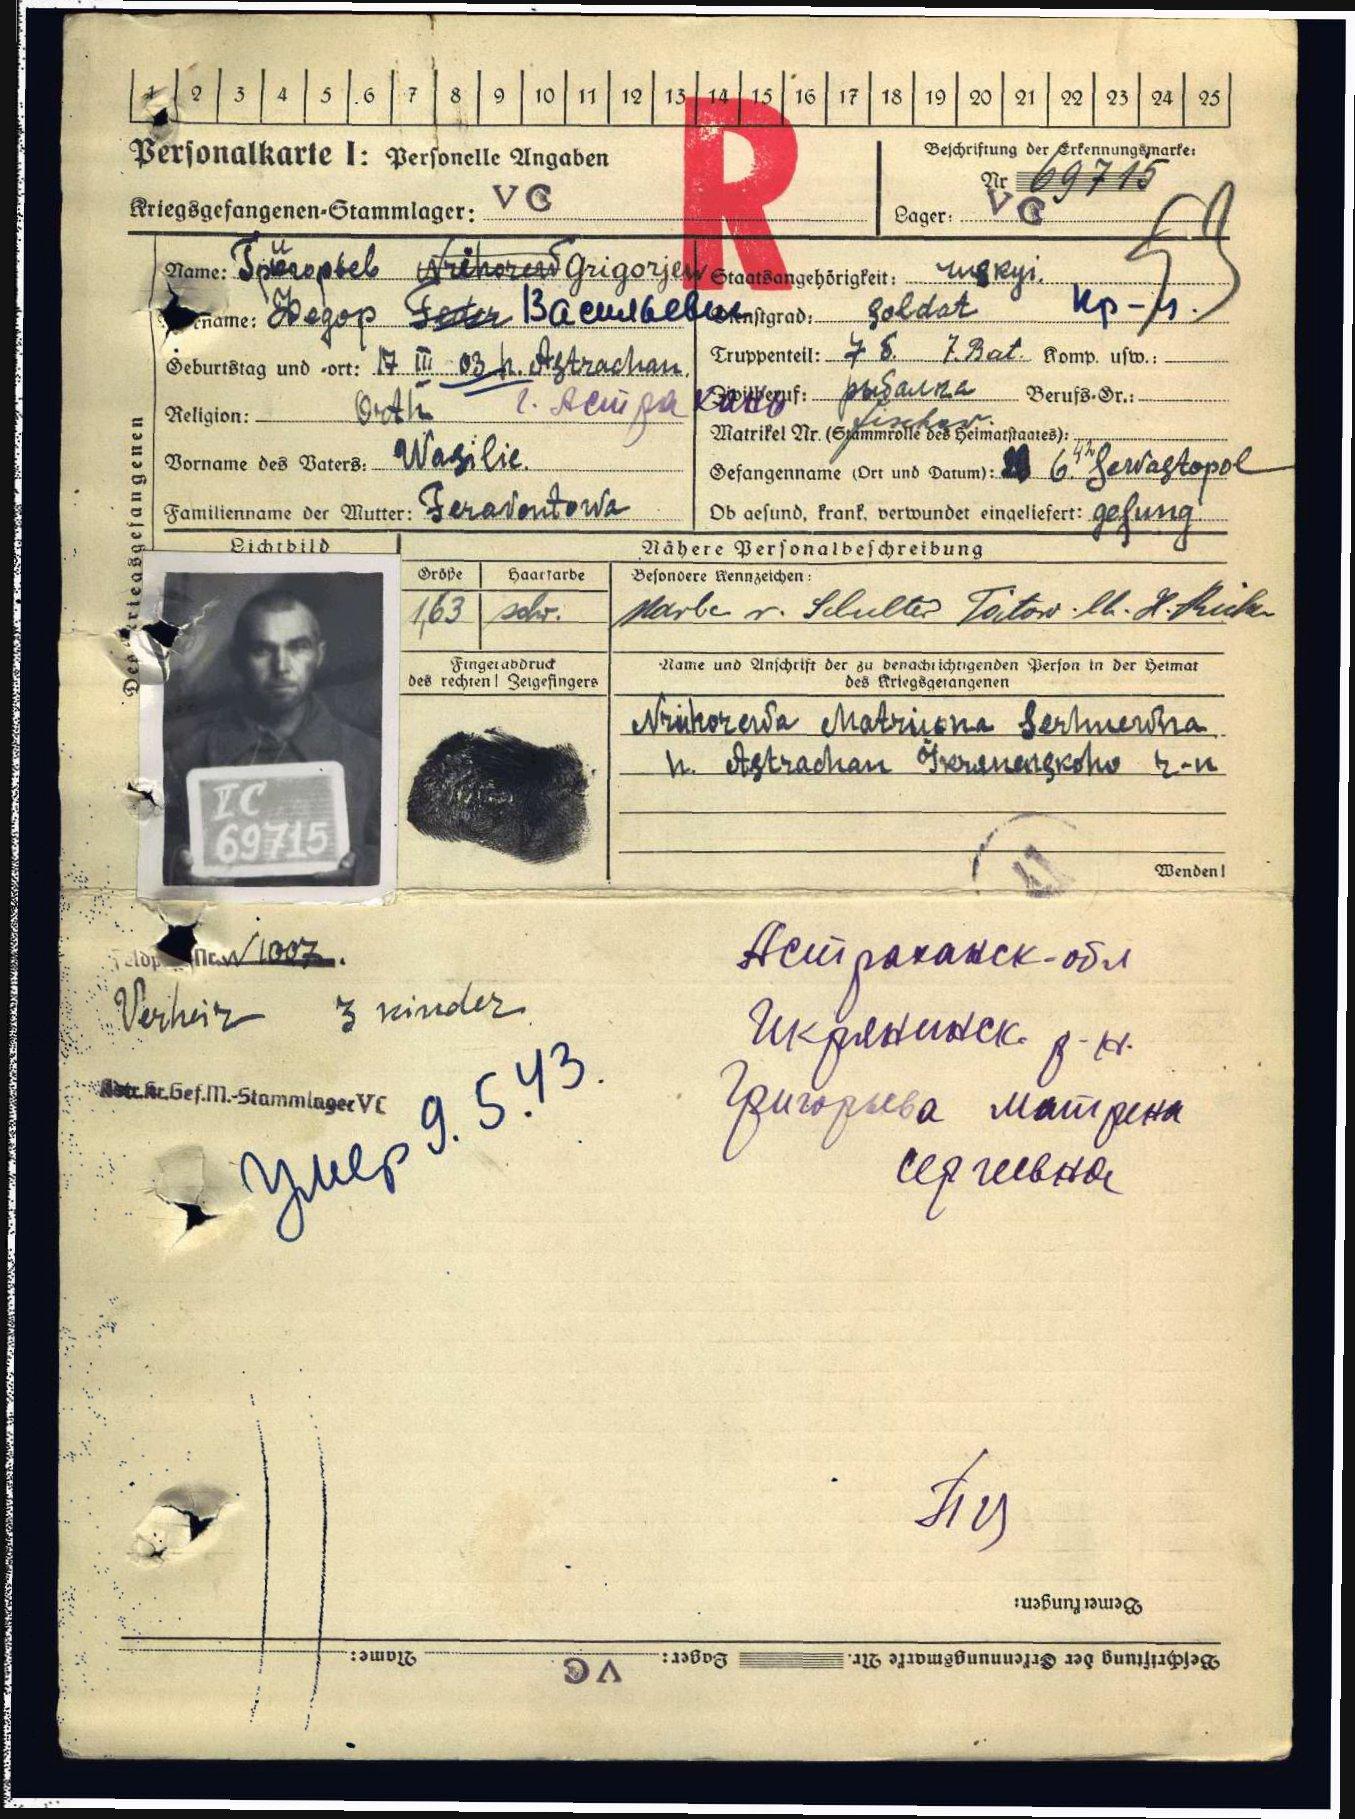 1 2 3 4 5 6 7 8 9 10 11 12 13 14 15 16 17 18 19 20 21 22 23 24 25
R
Personalkarte I: Personelle Angaben
Beschriftung der Erkennungsmarke:
Nr. 69715
Kriegsgefangenen-Stammlager: VC
Lager: VC
Des Kriegsgefangenen
Name: Григорьев Grigorjew
Staatsangehörigkeit:
Vorname: Федор Feder Васильевич
Dienstgrad: Soldat
Кр-н.
Geburtstag und -ort: 17 III 03 h. Astrachan.
Truppenteil: 7 7. Bat. Komp. usw.:
Religion: Orth г. Астрахань
Zivilberuf: рыбалка Berufs-Gr.:
fischer
Matrikel Nr. (Stammrolle des Heimatstaates):
Vorname des Vaters: Wasilie.
Gefangenname (Ort und Datum): 6. 42 Sewastopol
Familienname der Mutter: Feravontowa
Ob gesund, krank, verwundet eingeliefert: gesung
Lichtbild
Nähere Personalbeschreibung
Größe Haarfarbe Besondere Kennzeichen:
1,63 schr. Narbe r. Schulter
Fingerabdruck
des rechten! Zeigefingers
Name und Anschrift der zu benachrichtigenden Person in der Heimat
des Kriegsgefangenen
Nrihorewa Matriona Serhiewna
h. Astrachan r-n
VC
69715
Wenden!
Feldpost Nr. 1007.
Verheir 3 kinder
Astr.Kr.Gef.M.-Stammlager VC
Умер 9.5.43.
Астраханск-обл
Икрянинск. р-н.
Григорьева Матрена
Сергеевна
Bemerkungen:
Beschriftung der Erkennungsmarke Nr. Lager: VC Name: